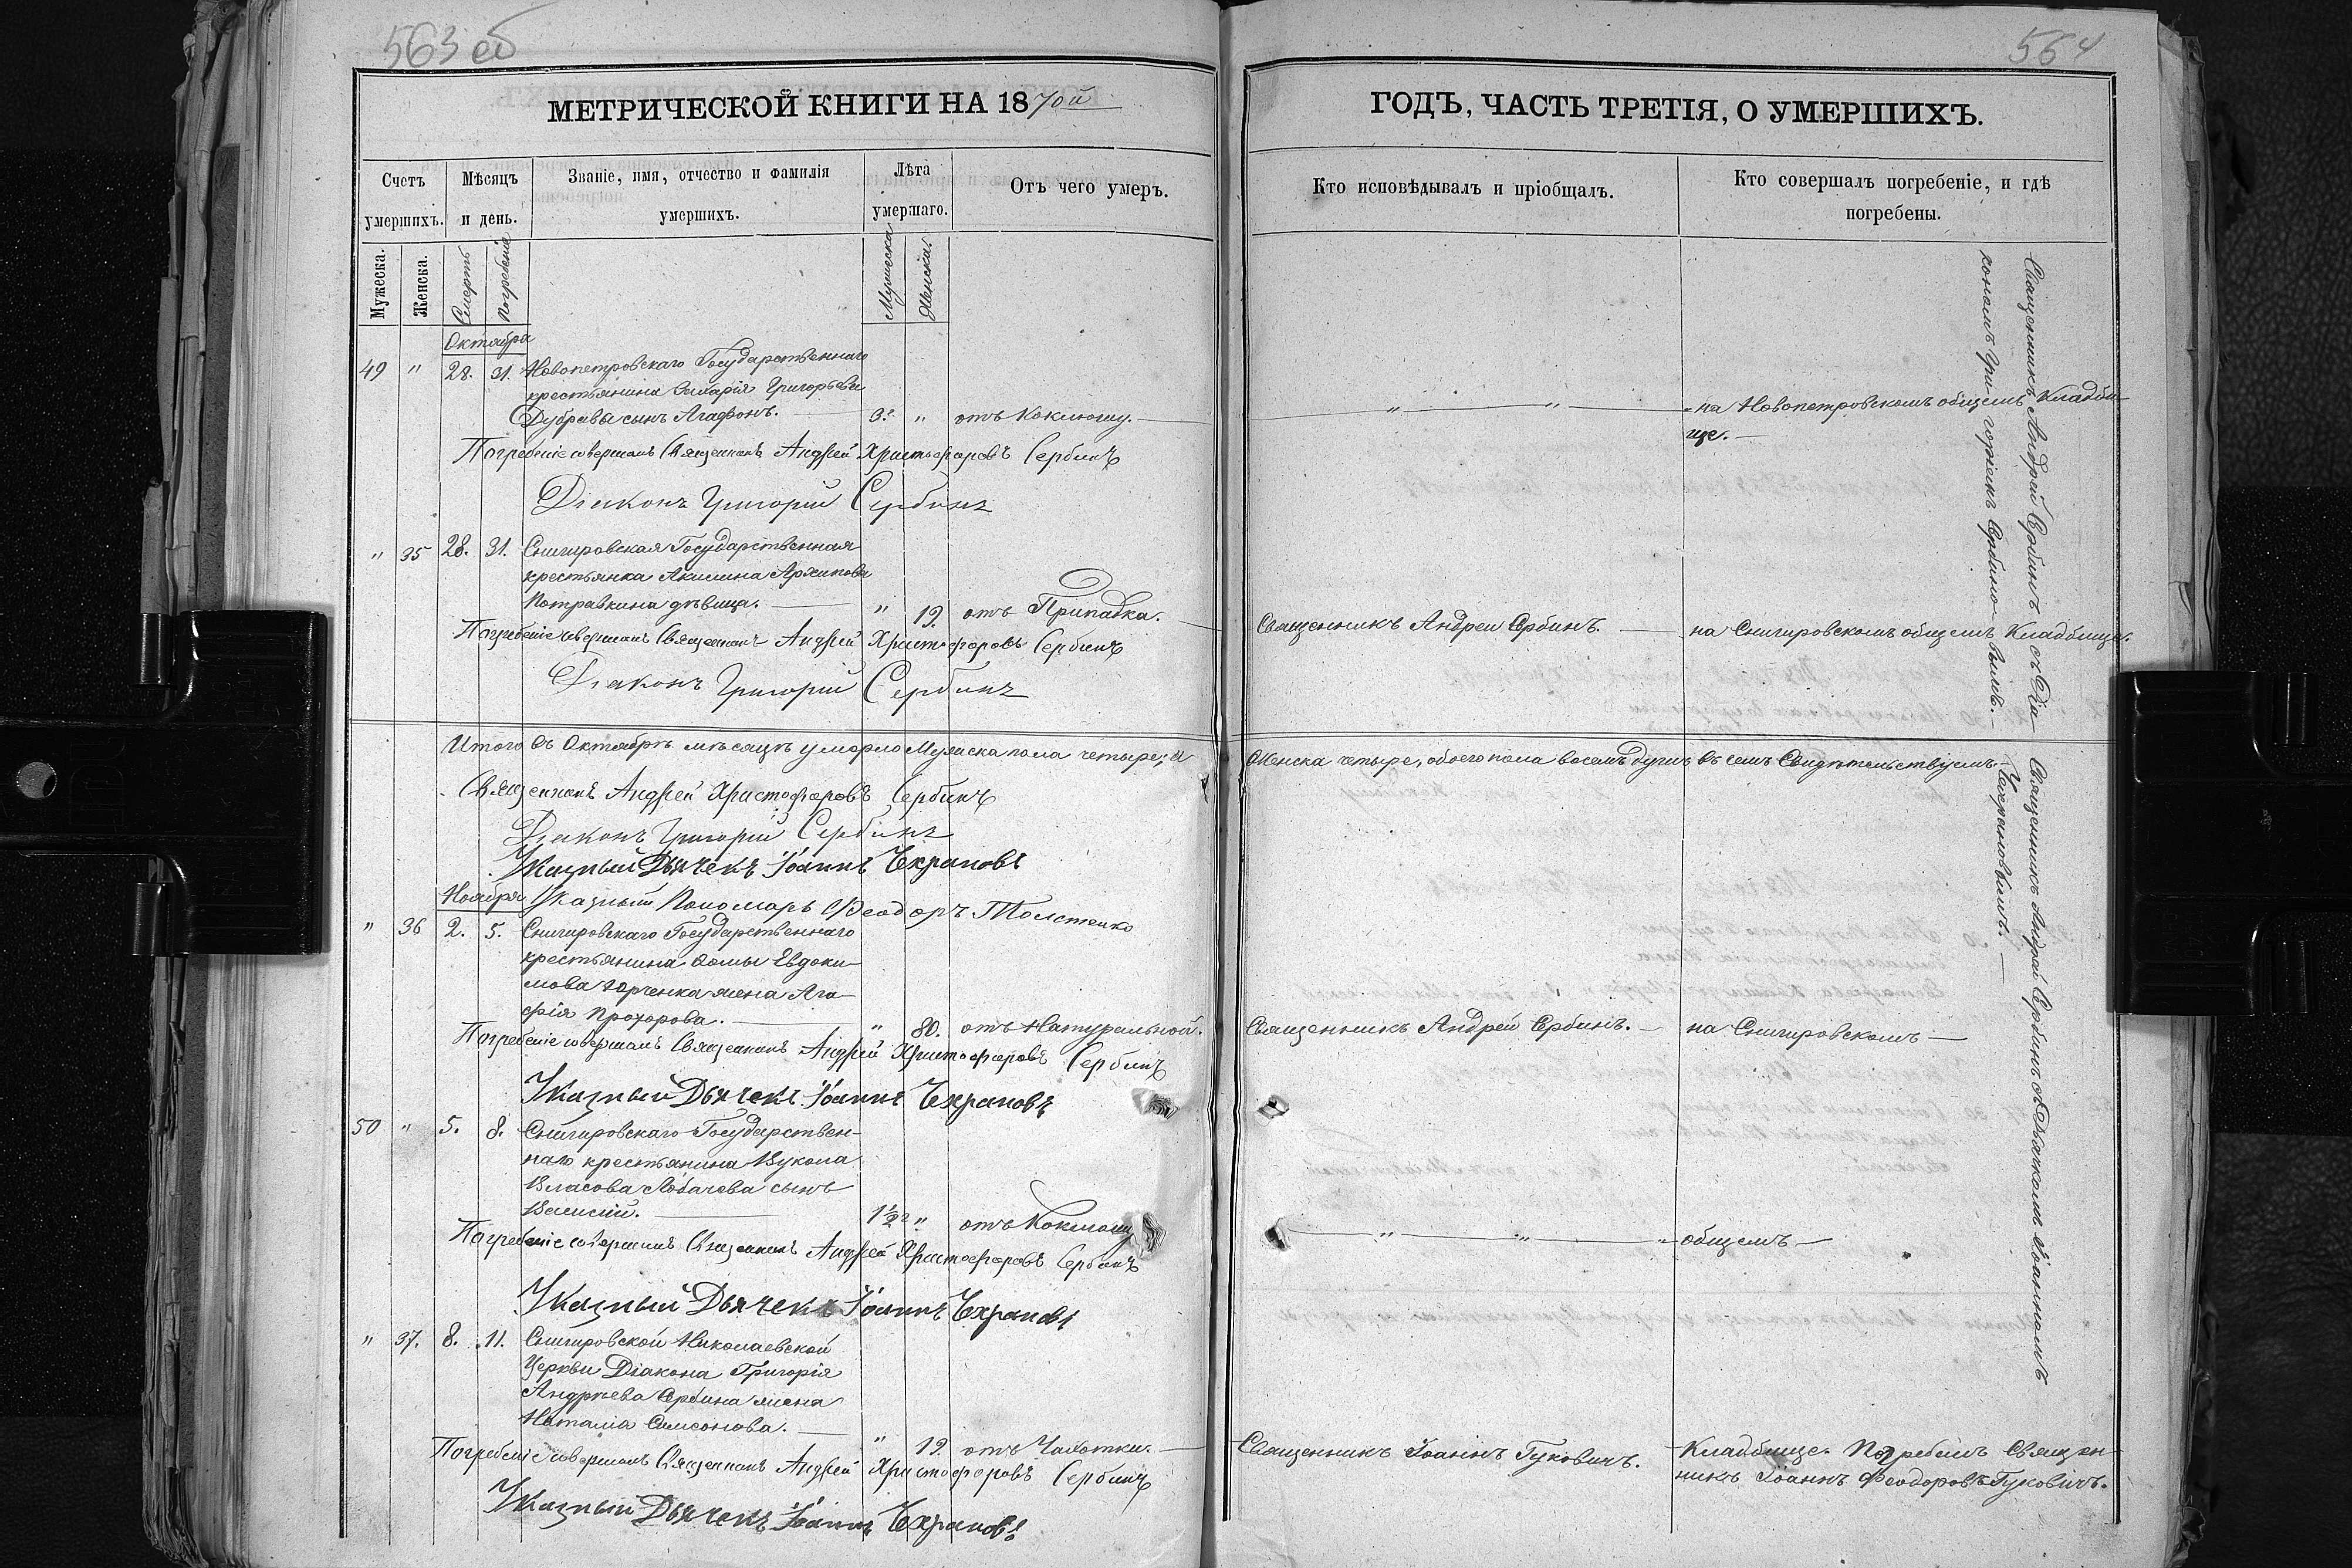 563 об
МЕТРИЧЕСКОЙ КНИГИ НА 1870й
Счетъ умершихъ.
Мѣсяцъ и день.
Званіе, имя, отчество и фамилія умершихъ.
Лѣта умершаго.
Отъ чего умеръ.
Мужеска.
Женска.
Смерть
Погребенія
Мужеска
Женска
Октября
49 " 28. 31. Новопетровскаго Государственнаго
крестьянина Захарія Григорьева
Дубравы сынъ Агафонъ. 3. " отъ Коклюшу.
Погребеніе совершалъ Священникъ Андрей Христофоровъ Сербинъ
Діаконъ Григорій Сербинъ
" 35 28. 31. Снигировская Государственная
крестьянка Акилина Архипова
Потравкина дѣвица. " 19. отъ Припадка.
Погребеніе совершалъ Священникъ Андрей Христофоровъ Сербинъ
Діаконъ Григорій Сербинъ
Итого въ Октябрѣ мѣсяцѣ умерло Мужеска пола четыре, а
Священникъ Андрей Христофоровъ Сербинъ
Діаконъ Григорій Сербинъ
Указный Дьячекъ Іоаннъ
Ноября Указный Пономарь Феодоръ Толстенко
" 36 2. 5. Снигировскаго Государственнаго
крестьянина Фомы Евдоки-
мова жена Ага-
фія Прохорова. " 80. отъ Натуральной.
Погребеніе совершалъ Священникъ Андрей Христофоровъ Сербинъ
Указный Дьячекъ Іоаннъ
50 " 5. 8. Снигировскаго Государствен-
наго крестьянина Вукола
Власова Лобачева сынъ
Василій. 1½ " отъ Коклюшу
Погребеніе совершалъ Священникъ Андрей Христофоровъ Сербинъ
Указный Дьячекъ Іоаннъ
" 37. 8. 11. Снигировской Николаевской
Церкви Діакона Григорія
Андреева Сербина жена
Наталія Самсонова. " 19. отъ Чахотки.
Погребеніе совершалъ Священникъ Андрей Христофоровъ Сербинъ
Указный Дьячекъ Іоаннъ
564
ГОДЪ, ЧАСТЬ ТРЕТІЯ, О УМЕРШИХЪ.
Кто исповѣдывалъ и пріобщалъ.
Кто совершалъ погребеніе, и гдѣ погребены.
" " " на Новопетровскомъ общемъ Кладби-
ще.
Священникъ Андрей Сербинъ. на Снигировскомъ общемъ Кладбище.
Женска четыре, обоего пола восемь душъ въ семъ Свидѣтельствуемъ.
Священникъ Андрей Сербинъ. на Снигировскомъ
" " " общемъ
Священникъ Іоаннъ Гуковичъ. Кладбище. Погребалъ Священ-
никъ Іоаннъ Феодоровъ Гуковичъ.
Священникъ Андрей Сербинъ съ Діа-
кономъ Григоріемъ Сербино-вымъ.
Священникъ Андрей Сербинъ съ Дьячкомъ Іоанномъ